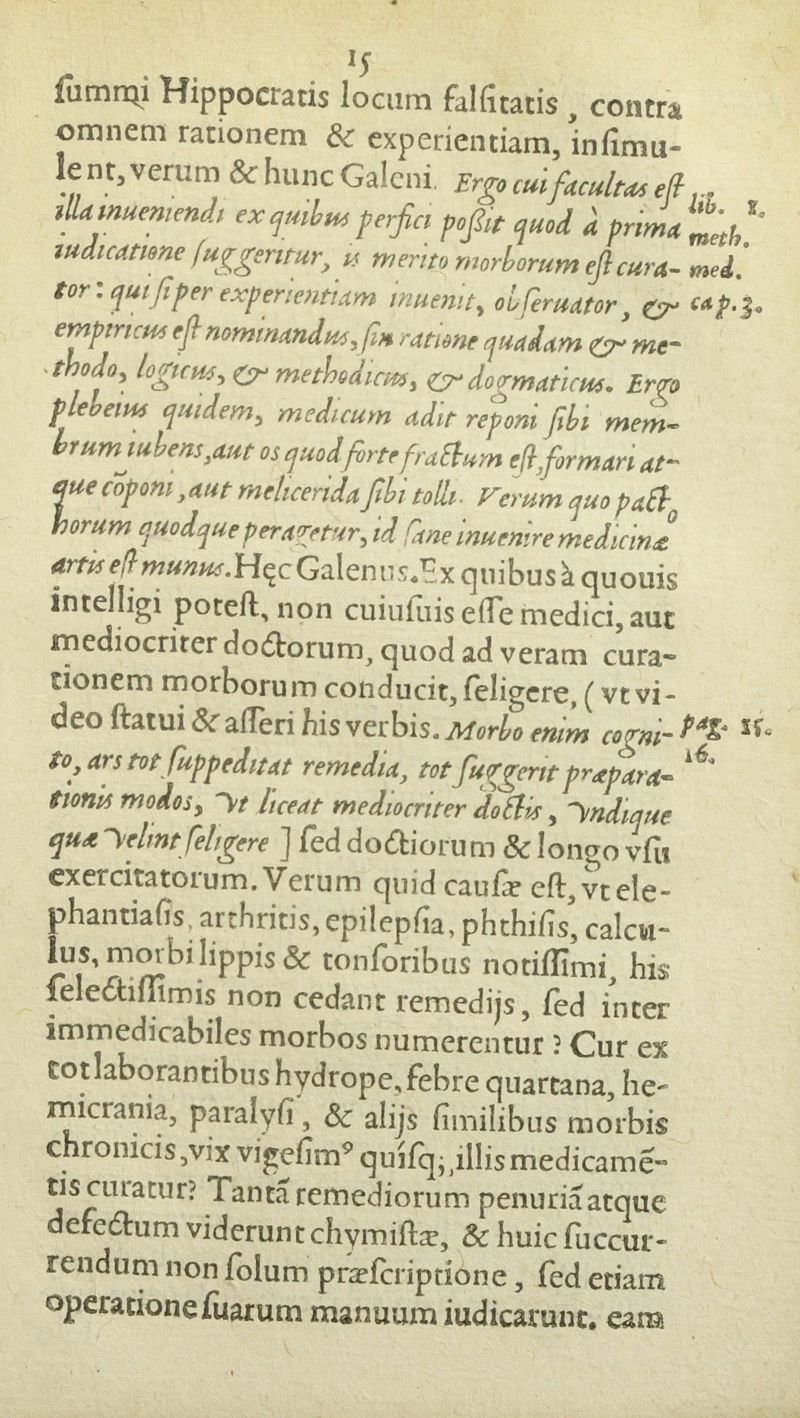 15
ſummi Hippocratis locum falſitatis, contra
omnem rationem & experientiam, inſimu-
lent, verum & hunc Galeni. Ergo cui facultas eſt
illa inueniendi ex quibus perfici poßit quod à prima
lib. 1.
meth.
iudicatione ſuggeritur, is merito morborum eſt cura-
med.
tor: qui ſi per experientiam inuenit, obſeruator, &
cap. 3.
empiricus eſt nominandus, ſin ratione quadam & me-
thodo, logicus, & methodicus, & dogmaticus. Ergo
plebeius quidem, medicum adit reponi ſibi mem-
brum iubens, aut os quod forte fractum eſt, formari at-
que cōponi, aut melicerida ſibi tolli. Verum quo pacto
horum quodque peragetur, id ſane inuenire medicinæ
artis eſt munus. Hęc Galenus. Ex quibus à quouis
intelligi poteſt, non cuiuſuis eſſe medici, aut
mediocriter doctorum, quod ad veram cura-
tionem morborum conducit, ſeligere, ( vt vi-
deo ſtatui & aſſeri his verbis. Morbo enim cogni-
pag. 15.
16.
to, ars tot ſuppeditat remedia, tot ſuggerit præpara-
tionis modos, vt liceat mediocriter doctis, vndique
quæ velint ſeligere ] ſed doctiorum & longo vſu
exercitatorum. Verum quid cauſæ eſt, vt ele-
phantiaſis, arthritis, epilepſia, phthiſis, calcu-
lus, morbi lippis & tonſoribus notiſſimi, his
ſelectiſſimis non cedant remedijs, ſed inter
immedicabiles morbos numerentur? Cur ex
tot laborantibus hydrope, febre quartana, he-
micrania, paralyſi, & alijs ſimilibus morbis
chronicis, vix vigeſimꝰ quiſq;, illis medicamē-
tis curatur? Tantā remediorum penuriā atque
defectum viderunt chymiſtæ, & huic ſuccur-
rendum non ſolum præſcriptione, ſed etiam
operatione ſuarum manuum iudicarunt. eam